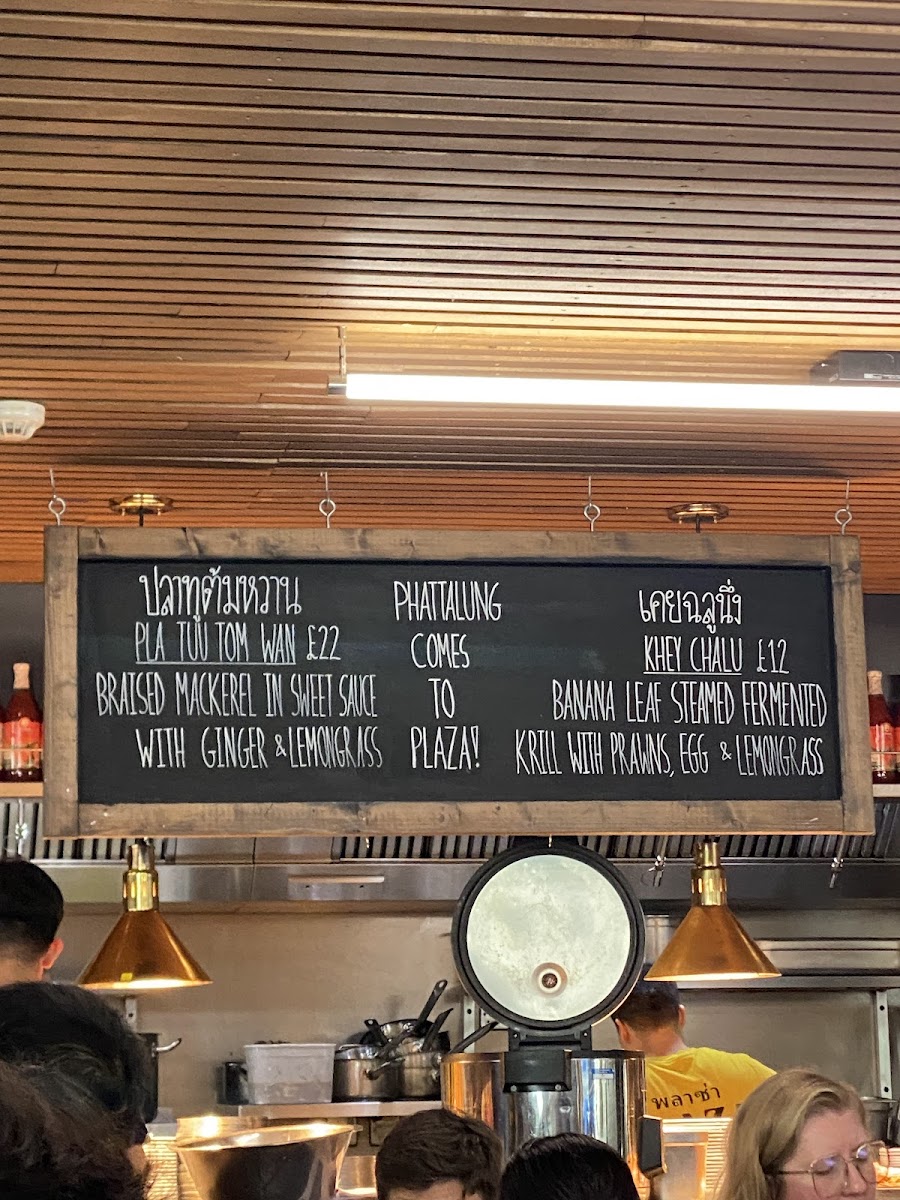 ปลาทูต้มหวาน
PLA TUU TOM WAN £22
BRAISED MACKEREL IN SWEET SAUCE
WITH GINGER & LEMONGRASS
PHATTALUNG
COMES
TO
PLAZA!
เคยฉลูนึ่ง
KHEY CHALU £12
BANANA LEAF STEAMED FERMENTED
KRILL WITH PRAWNS, EGG & LEMONGRASS
พลาซ่า